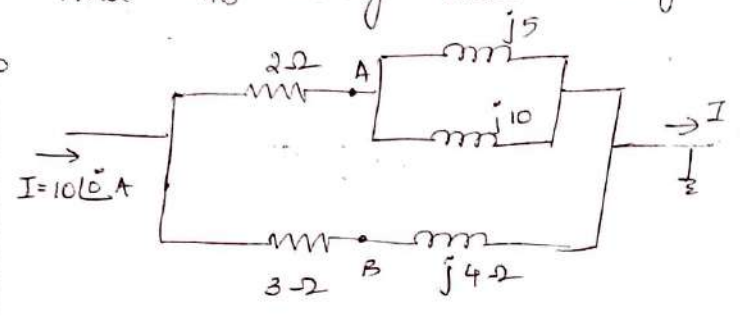 j5
2Ω
A
j10
I
I=10∠0° A
3Ω
B
j4Ω